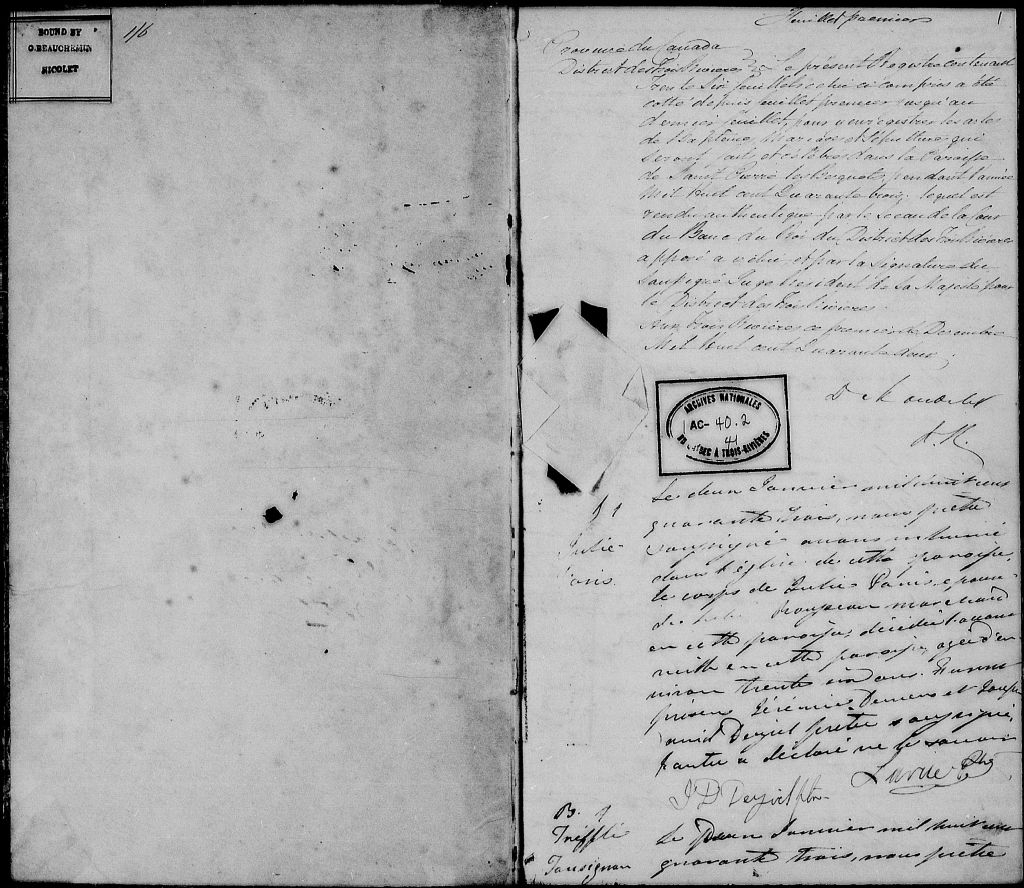 BOUND BY
O. BEAUCHEMIN
NICOLET
116
feuillet premier
1
Province du Canada
District des Trois Rivières Le présent Registre contenant
trente six feuillets celui ci compris a été
cotté depuis feuillet premier jusqu'au
dernier feuillet, pour y enregistrer les actes
de Baptême, Mariages et Sépulture qui
seront faits et célébrés dans la Paroisse
de Saint Pierre les Becquets pendant l'année
Mil Huit cent Quarante trois; lequel est
rendu authentique par le sceau de la Cour
du Banc du Roi du District des Trois Rivières
apposé à celui et par la signature du
soussigné Juge Resident de Sa Majesté pour
le District des Trois Rivières.
Aux Trois Rivières ce premier de Décembre
Mil Huit cent Quarante deux;
D Mondelet
ARCHIVES NATIONALES
AC- 40.2
41
DU QUÉBEC À TROIS-RIVIÈRES
Le deux Janvier mil huit cent
quarante trois, nous prêtre
Julie
soussigné avons inhumé
Paris
dans l'église de cette paroisse,
le corps de Julie Paris, épouse
de marchand
en cette paroisse, décédée l'avant
veille en cette paroisse, agée d'en
viron trente six ans. Furent
présens Jérémie Demers et Joseph
David Deziel prêtre soussigné,
l'autre a déclaré ne le savoir
Larue Ptre
J D Deziel ptre
B.
Trefflé
Le deux Janvier mil huit cent
Tousignan
quarante trois, nous prêtre